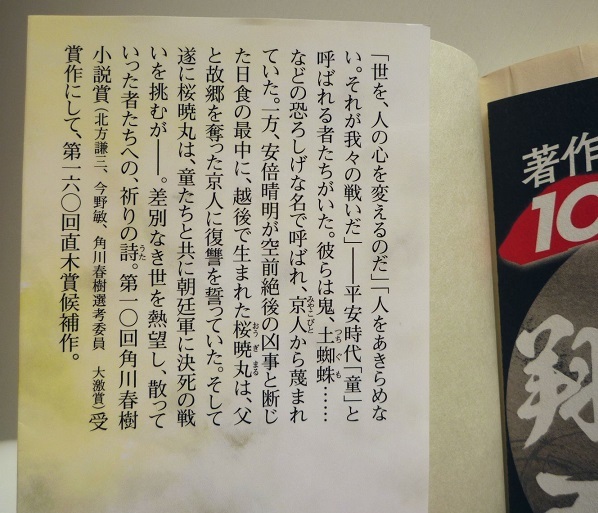 「世を、人の心を変えるのだ」「人をあきらめな
い。それが我々の戦いだ」――平安時代「童」と
呼ばれる者たちがいた。彼らは鬼、土蜘蛛……
つちぐも
などの恐ろしげな名で呼ばれ、京人から蔑まれ
みやこびと
ていた。一方、安倍晴明が空前絶後の凶事と断じ
た日食の最中に、越後で生まれた桜暁丸は、父
おうぎまる
と故郷を奪った京人に復讐を誓っていた。そして
遂に桜暁丸は、童たちと共に朝廷軍に決死の戦
いを挑むが――。差別なき世を熱望し、散って
いった者たちへの、祈りの詩。第一〇回角川春樹
うた
小説賞(北方謙三、今野敏、角川春樹選考委員 大激賞)受
賞作にして、第一六〇回直木賞候補作。
著作
10
翔